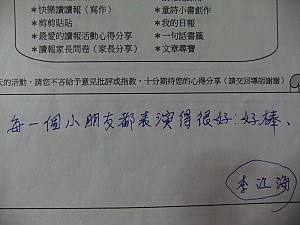 *快樂讀讀報（寫作） *童詩小書創作
*剪剪貼貼 *我的日報
*最愛的讀報活動心得分享 *一句話書籤
*讀報家長問卷（家長分享） *文章尋寶
天的活動，請您不吝給予意見批評或指教，十分期待您的心得分享（請交回導師謝謝）
每一個小朋友都表演得很好!好棒、
李江海